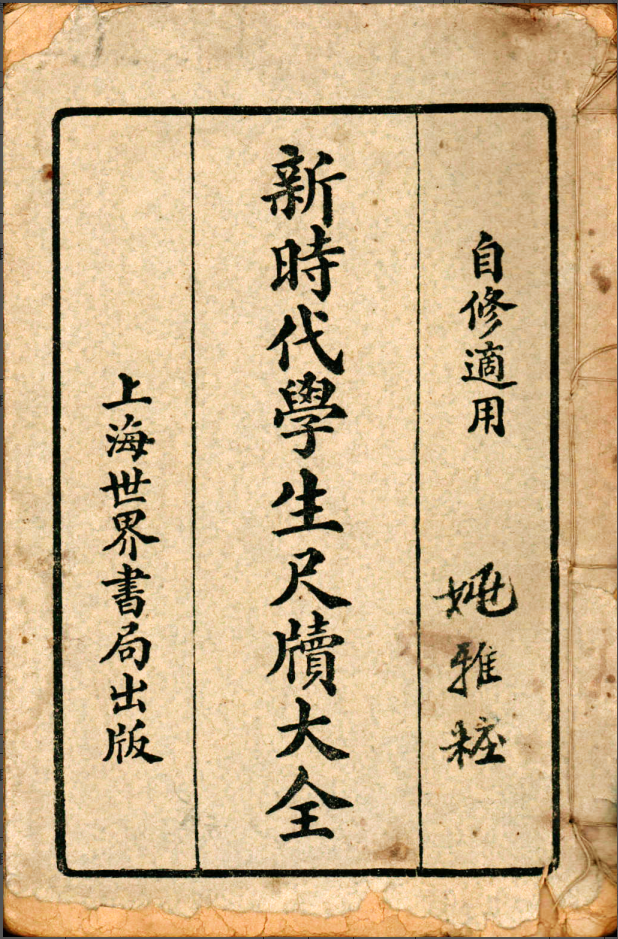 自修適用
雅粧
新時代學生尺牘大全
上海世界書局出版